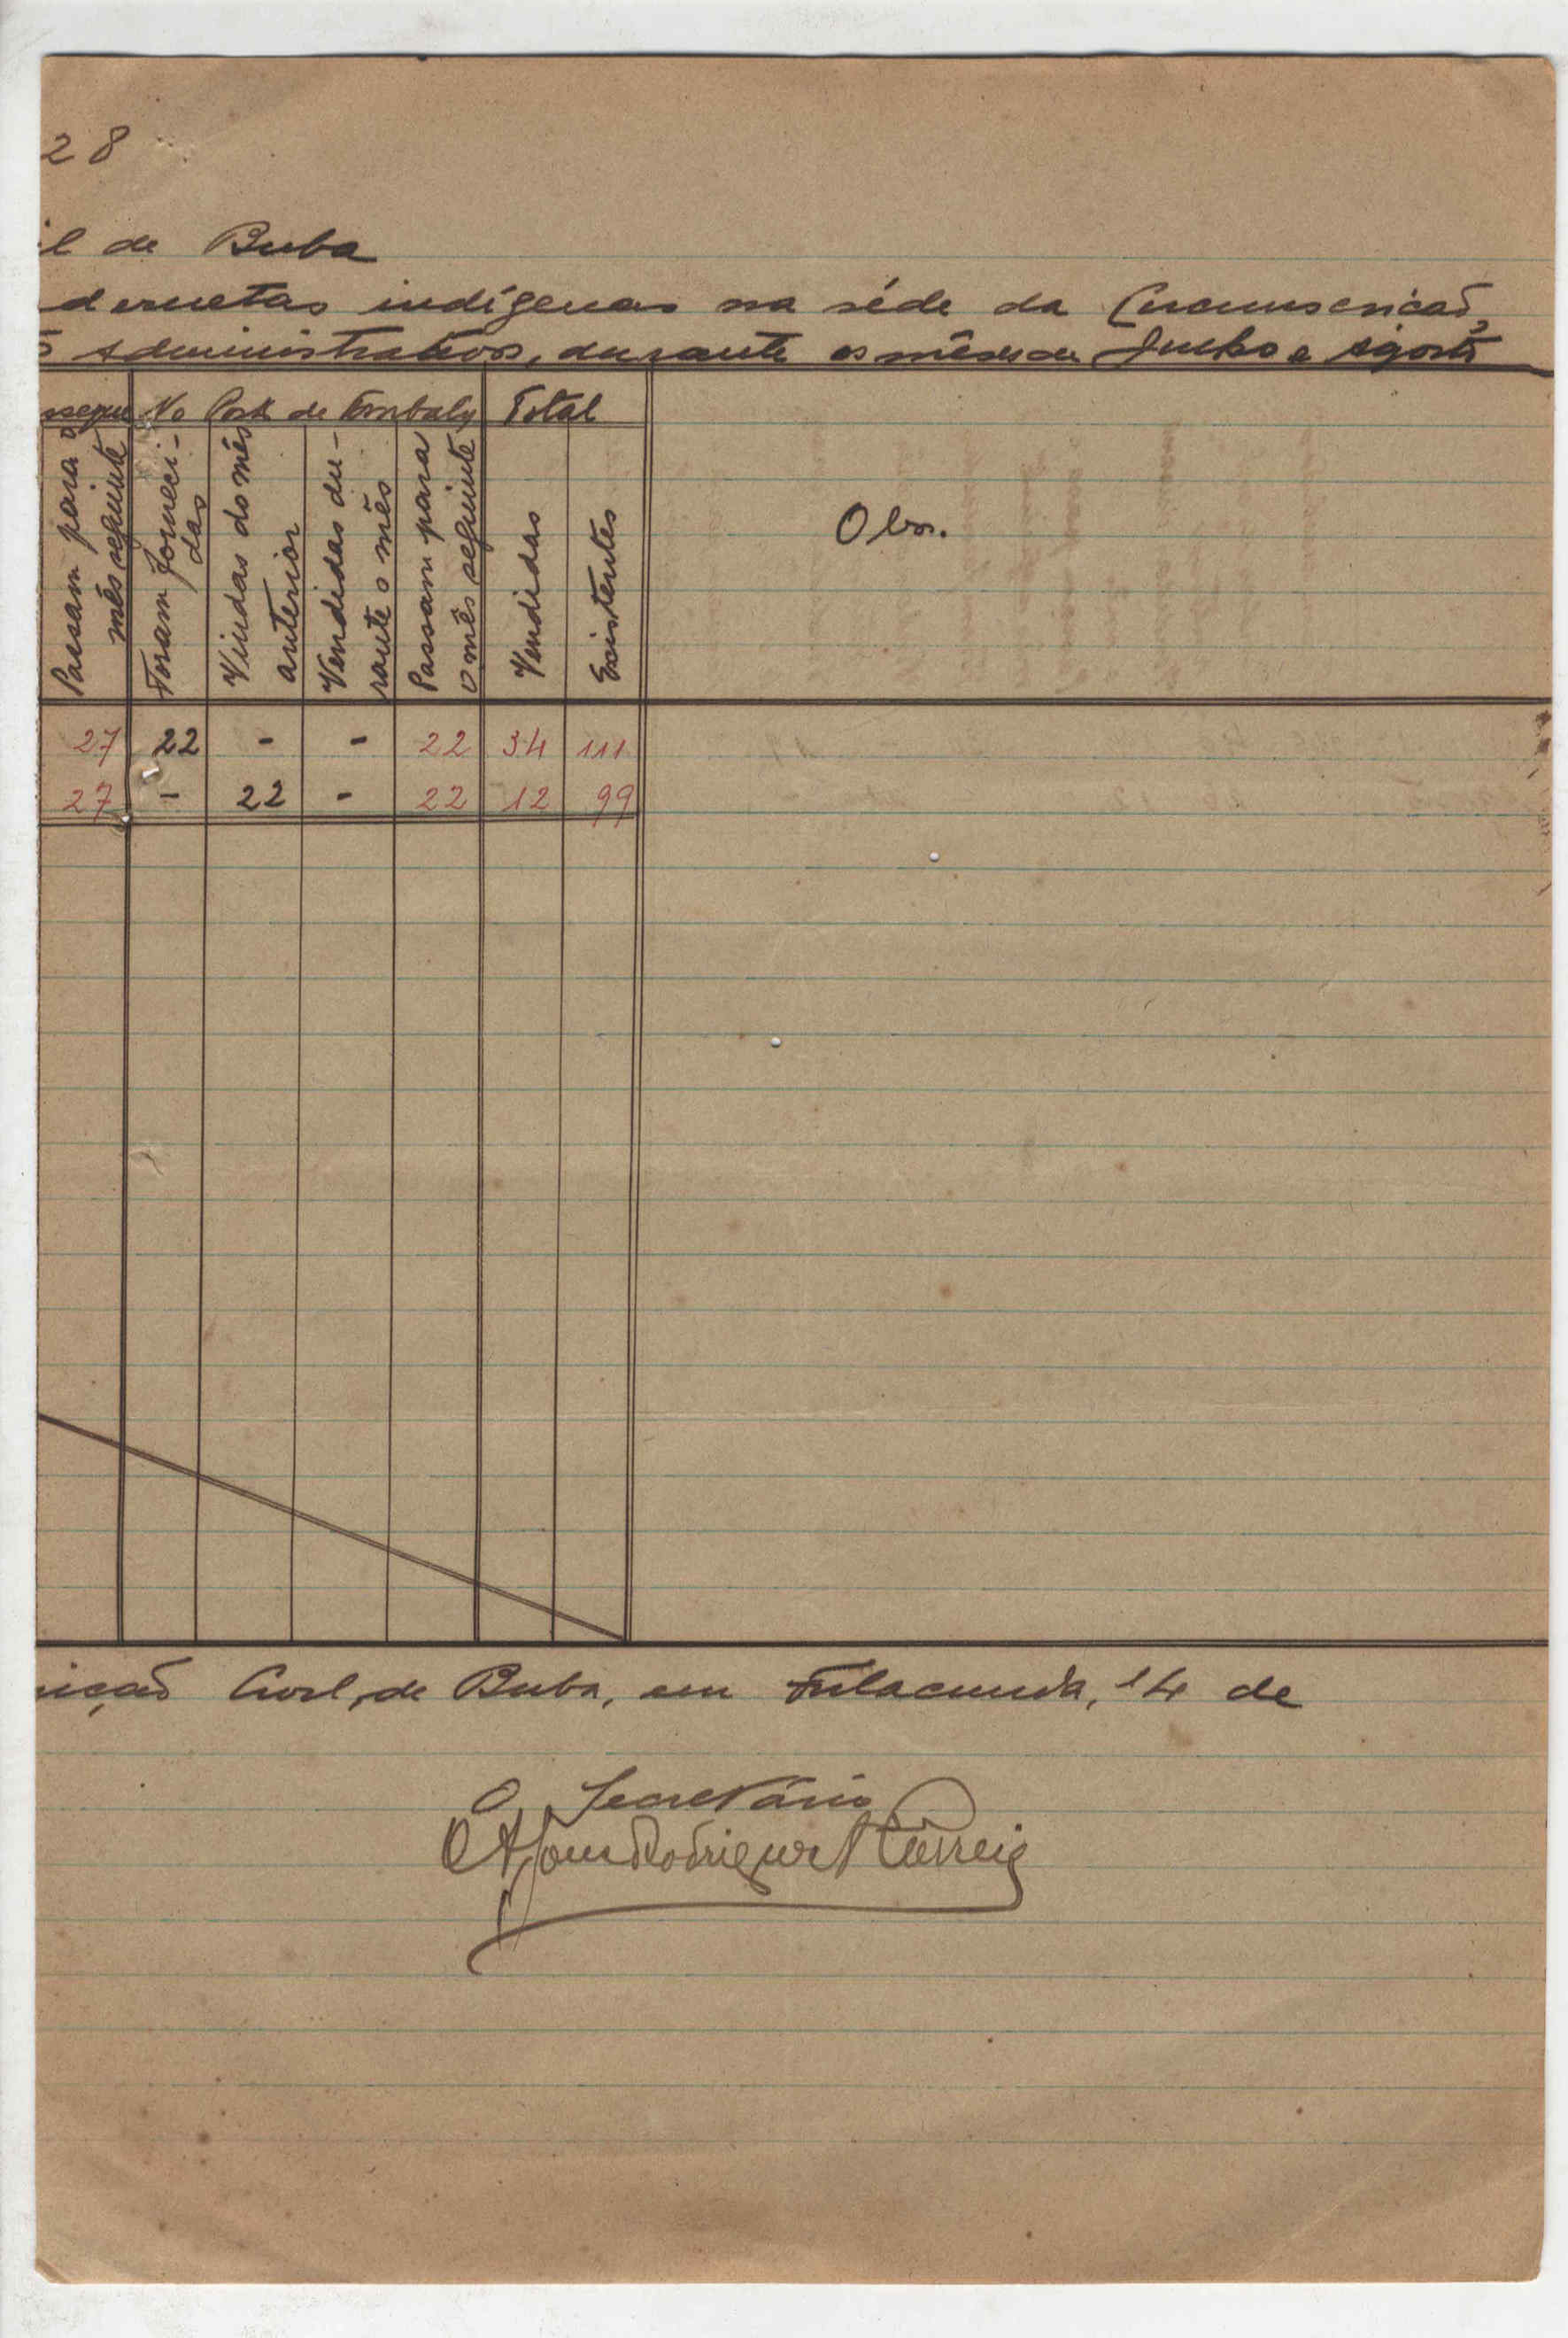 28
l de Buba
dernetas indígenas na séde da Circunscrição,
s administrativos, durante os mêses de Julho e Agosto
No Post. de Empada Total
Passam para o mês seguinte
Foram forneci-
das
Vindas do mês
anterior
Vendidas du-
rante o mês
Passam para
o mês seguinte
Vendidas
Existentes
Obs.
27 22 - - 22 34 111
27 - 22 - 22 12 99
rição Civil, de Buba, em Fulacunda, 14 de
O Secretário
Rodrigues